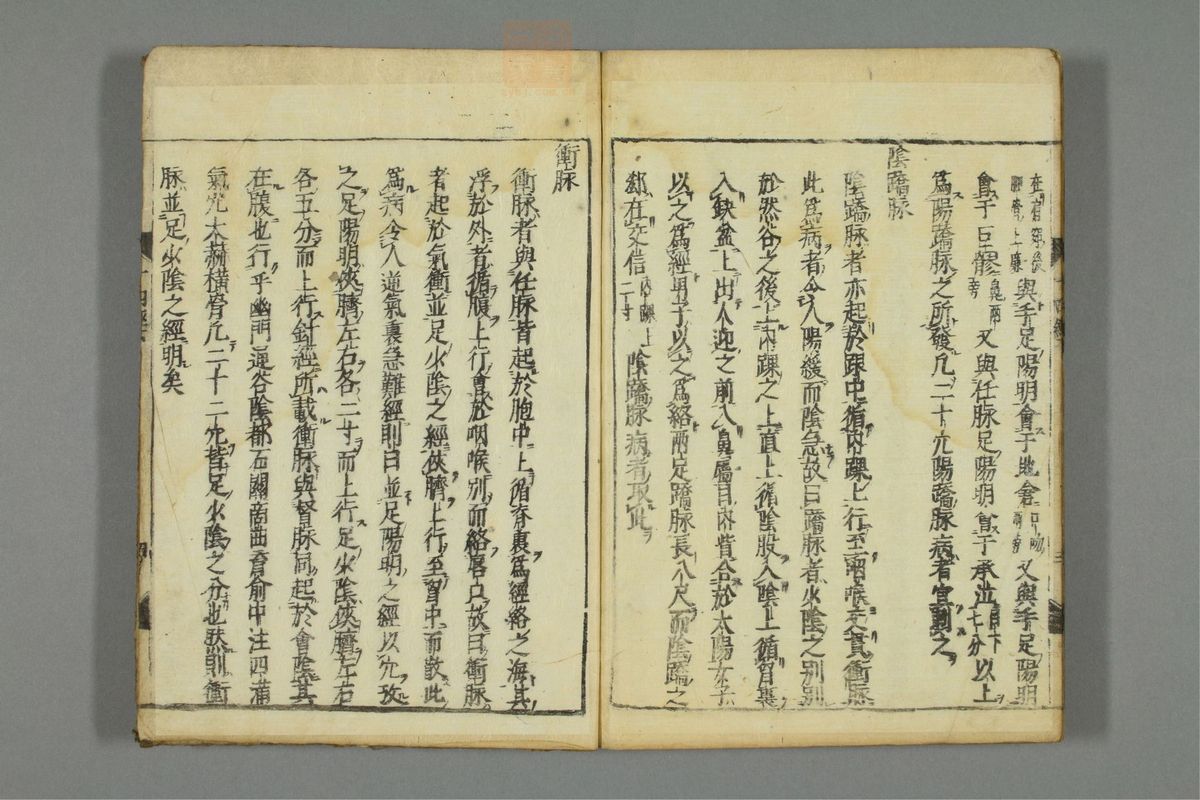 在肩髃後胛骨上廉與手足陽明會于地倉口吻兩旁又與手足陽明
會于巨髎鼻兩旁又與任脉足陽明會于承泣目下七分以上
爲陽蹻脉之所發凡二十穴陽蹻脉病者宜刺之
陰蹻脉
陰蹻脉者亦起於跟中循内踝上行至咽喉交貫衝脉
此爲病者令人陽緩而陰急故曰蹻脉者少陰之别别
於然谷之後上内踝之上直上循陰股入陰上循胷裏
入缺盆上出人迎之前入鼻屬目内眥合於太陽女子
以之爲經男子以之爲絡兩足蹻脉長八尺而陰蹻之
郄在交信内踝上二寸陰蹻脉病者取此
衝脉
衝脉者與任脉皆起於胞中上循脊裏爲經絡之海其
浮於外者循腹上行會於咽喉别而絡唇口故曰衝脉
者起於氣衝並足少陰之經俠臍上行至胷中而散此
爲病令人逆氣裏急難經則曰並足陽明之經以穴攷
之足陽明俠臍左右各二寸而上行足少陰俠臍左右
各五分而上行針經所載衝脉與督脉同起於會陰其
在腹也行乎幽門通谷陰都石關商曲肓俞中注四滿
氣穴大赫横骨凡二十二穴皆足少陰之分也然則衝
脉並足少陰之經明矣